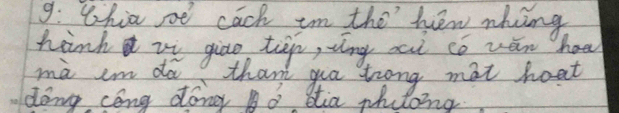 9: Chia sẻ cách em thể hiện những
hành vi giao tiếp, ứng xử có văn hoa
mà em đã tham gia trong một hoạt
động cộng đồng ở địa phương.